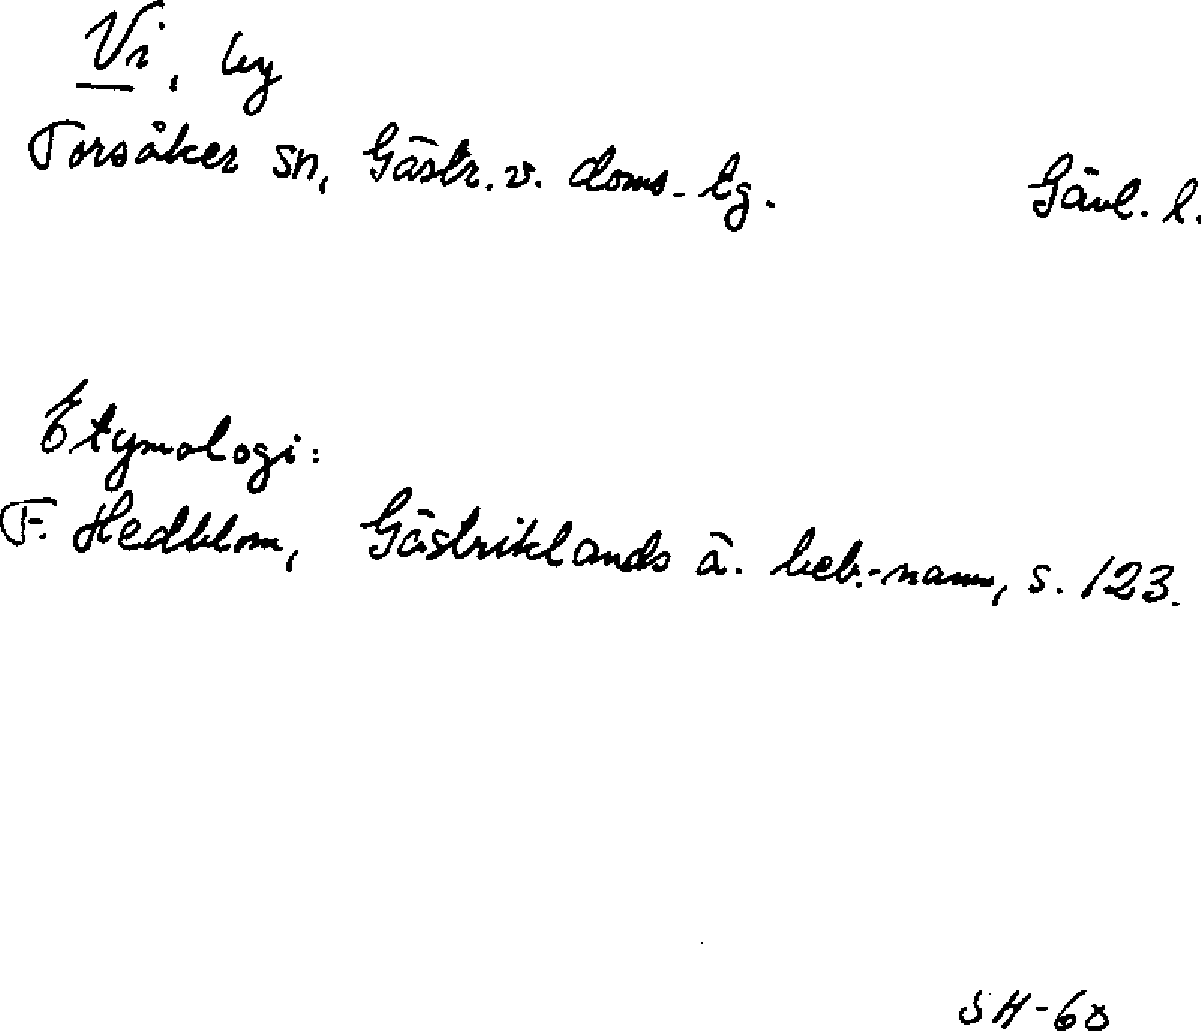 Vi, by
Torsåker sn, Gästr. v. doms-tg. Gävl. l.
Etymologi:
F. Hedblom, Gästriklands ä. beb.-namn, s. 123.
SH-60